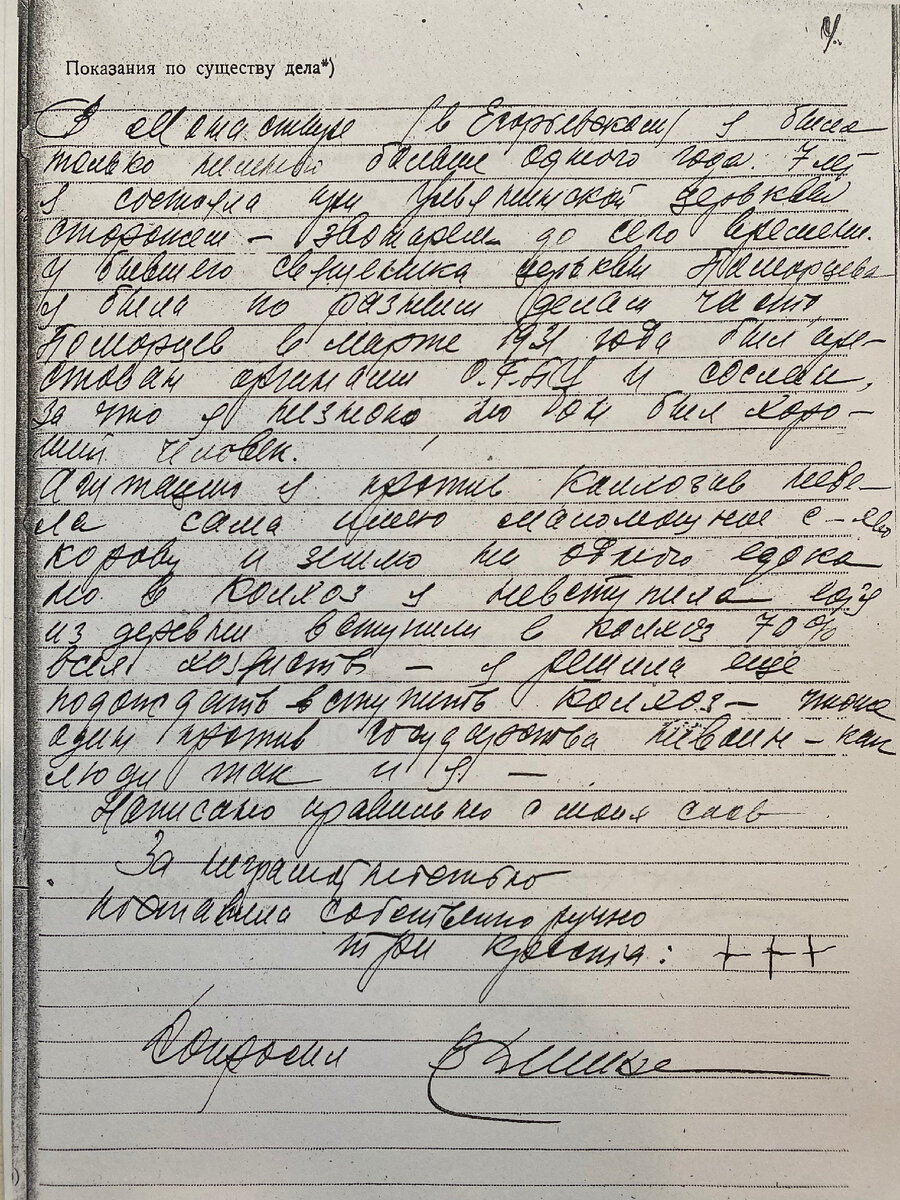 Показания по существу дела*)
В Монастыре (в Егорьевском) я была
только немной больше одного года. 7 лет
я состояла при церквей
сторожем – звонарем до сего времени.
У бывшего священика церькви Поморцева
я была по разным делам часто
Поморцев в марте 1931 года был аре-
стован органами О.Г.П.У и сослан,
за что я незнаю, но он был хоро-
ший человек.
Агитацию я против колхозов неве-
ла сама имею маломощное с–во
корову и землю на одного едока
но в колхоз я невступила
из деревни вступили в колхоз 70%
всех хозяйств – я решила еще
подождать вступить колхоз –
один против государства невоин – как
люди так и я –
Написано правильно с моих слов
За неграмотностью
поставила собственноручно
три креста: + + +
Допросил